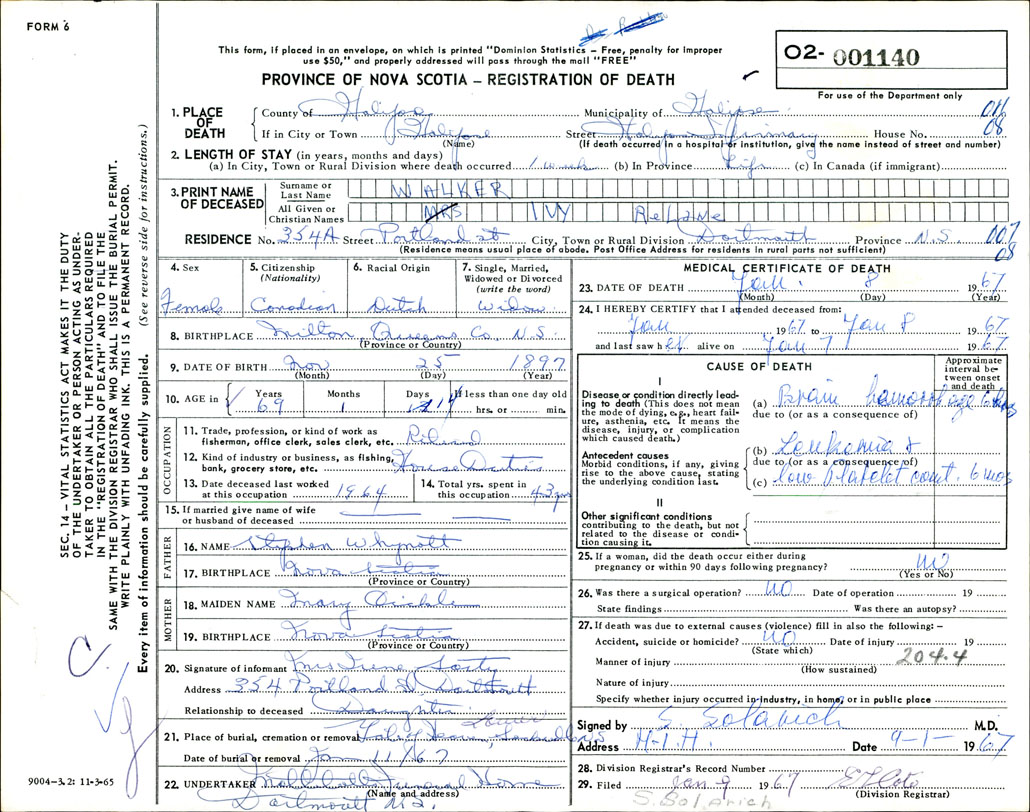 FORM 6
This form, if placed in an envelope, on which is printed "Dominion Statistics – Free, penalty for improper
use $50," and properly addressed will pass through the mail "FREE"
PROVINCE OF NOVA SCOTIA – REGISTRATION OF DEATH
O2- 001140
For use of the Department only
SEC. 14 – VITAL STATISTICS ACT MAKES IT THE DUTY
OF THE UNDERTAKER OR PERSON ACTING AS UNDER-
TAKER TO OBTAIN ALL THE PARTICULARS REQUIRED
IN THE "REGISTRATION OF DEATH" AND TO FILE THE
SAME WITH THE DIVISION REGISTRAR WHO SHALL ISSUE THE BURIAL PERMIT.
WRITE PLAINLY WITH UNFADING INK. THIS IS A PERMANENT RECORD.
Every item of information should be carefully supplied. (See reverse side for instructions.)
1. PLACE OF DEATH
County of Halifax Municipality of Halifax 011
If in City or Town Halifax Street Halifax Infirmary House No. 08
(Name) (If death occurred in a hospital or institution, give the name instead of street and number)
2. LENGTH OF STAY (in years, months and days)
(a) In City, Town or Rural Division where death occurred 1 week (b) In Province Life (c) In Canada (if immigrant)
3. PRINT NAME OF DECEASED
Surname or Last Name WALKER
All Given or Christian Names MRS IVY ReLINe
RESIDENCE No. 354A Street Portland st City, Town or Rural Division Dartmouth Province N.S. 007
(Residence means usual place of abode. Post Office Address for residents in rural parts not sufficient) 08
4. Sex Female
5. Citizenship (Nationality) Canadian
6. Racial Origin Dutch
7. Single, Married, Widowed or Divorced (write the word) Widow
8. BIRTHPLACE Milton Queens Co. N.S.
(Province or Country)
9. DATE OF BIRTH Nov 25 1897
(Month) (Day) (Year)
10. AGE in Years 69 Months 1 Days 14 If less than one day old hrs. or min.
OCCUPATION
11. Trade, profession, or kind of work as fisherman, office clerk, sales clerk, etc. Retired
12. Kind of industry or business, as fishing, bank, grocery store, etc. House Duties
13. Date deceased last worked at this occupation 1964
14. Total yrs. spent in this occupation 43 yrs
15. If married give name of wife or husband of deceased
FATHER
16. NAME Stephen Whynott
17. BIRTHPLACE Nova Scotia
(Province or Country)
MOTHER
18. MAIDEN NAME Mary
19. BIRTHPLACE Nova Scotia
(Province or Country)
20. Signature of informant Mrs Irene
Address 354 Portland St Dartmouth
Relationship to deceased Daughter
21. Place of burial, cremation or removal
Date of burial or removal Jan 11/67
22. UNDERTAKER Funeral Home
(Name and address)
Dartmouth N.S.
MEDICAL CERTIFICATE OF DEATH
23. DATE OF DEATH Jan. 8 1967
(Month) (Day) (Year)
24. I HEREBY CERTIFY that I attended deceased from:
Jan 1967 to Jan 8 1967
and last saw her alive on Jan 7 1967
CAUSE OF DEATH
Approximate interval between onset and death
I
Disease or condition directly leading to death (This does not mean the mode of dying, e.g., heart failure, asthenia, etc. It means the disease, injury, or complication which caused death.)
(a) Brain hemorrhage
due to (or as a consequence of)
Antecedent causes
Morbid conditions, if any, giving rise to the above cause, stating the underlying condition last.
(b) Leukemia &
due to (or as a consequence of)
(c) low platelet count. 6 mos
II
Other significant conditions
contributing to the death, but not related to the disease or condition causing it.
25. If a woman, did the death occur either during pregnancy or within 90 days following pregnancy? no
(Yes or No)
26. Was there a surgical operation? no Date of operation 19
State findings Was there an autopsy?
27. If death was due to external causes (violence) fill in also the following: –
Accident, suicide or homicide? no Date of injury 19
(State which)
Manner of injury 204.4
(How sustained)
Nature of injury
Specify whether injury occurred in industry, in home, or in public place
Signed by M.D.
Address H.I.H. Date 9-1- 1967
28. Division Registrar's Record Number
29. Filed Jan 9 1967
(Division Registrar)
9004-3.2: 11-3-65